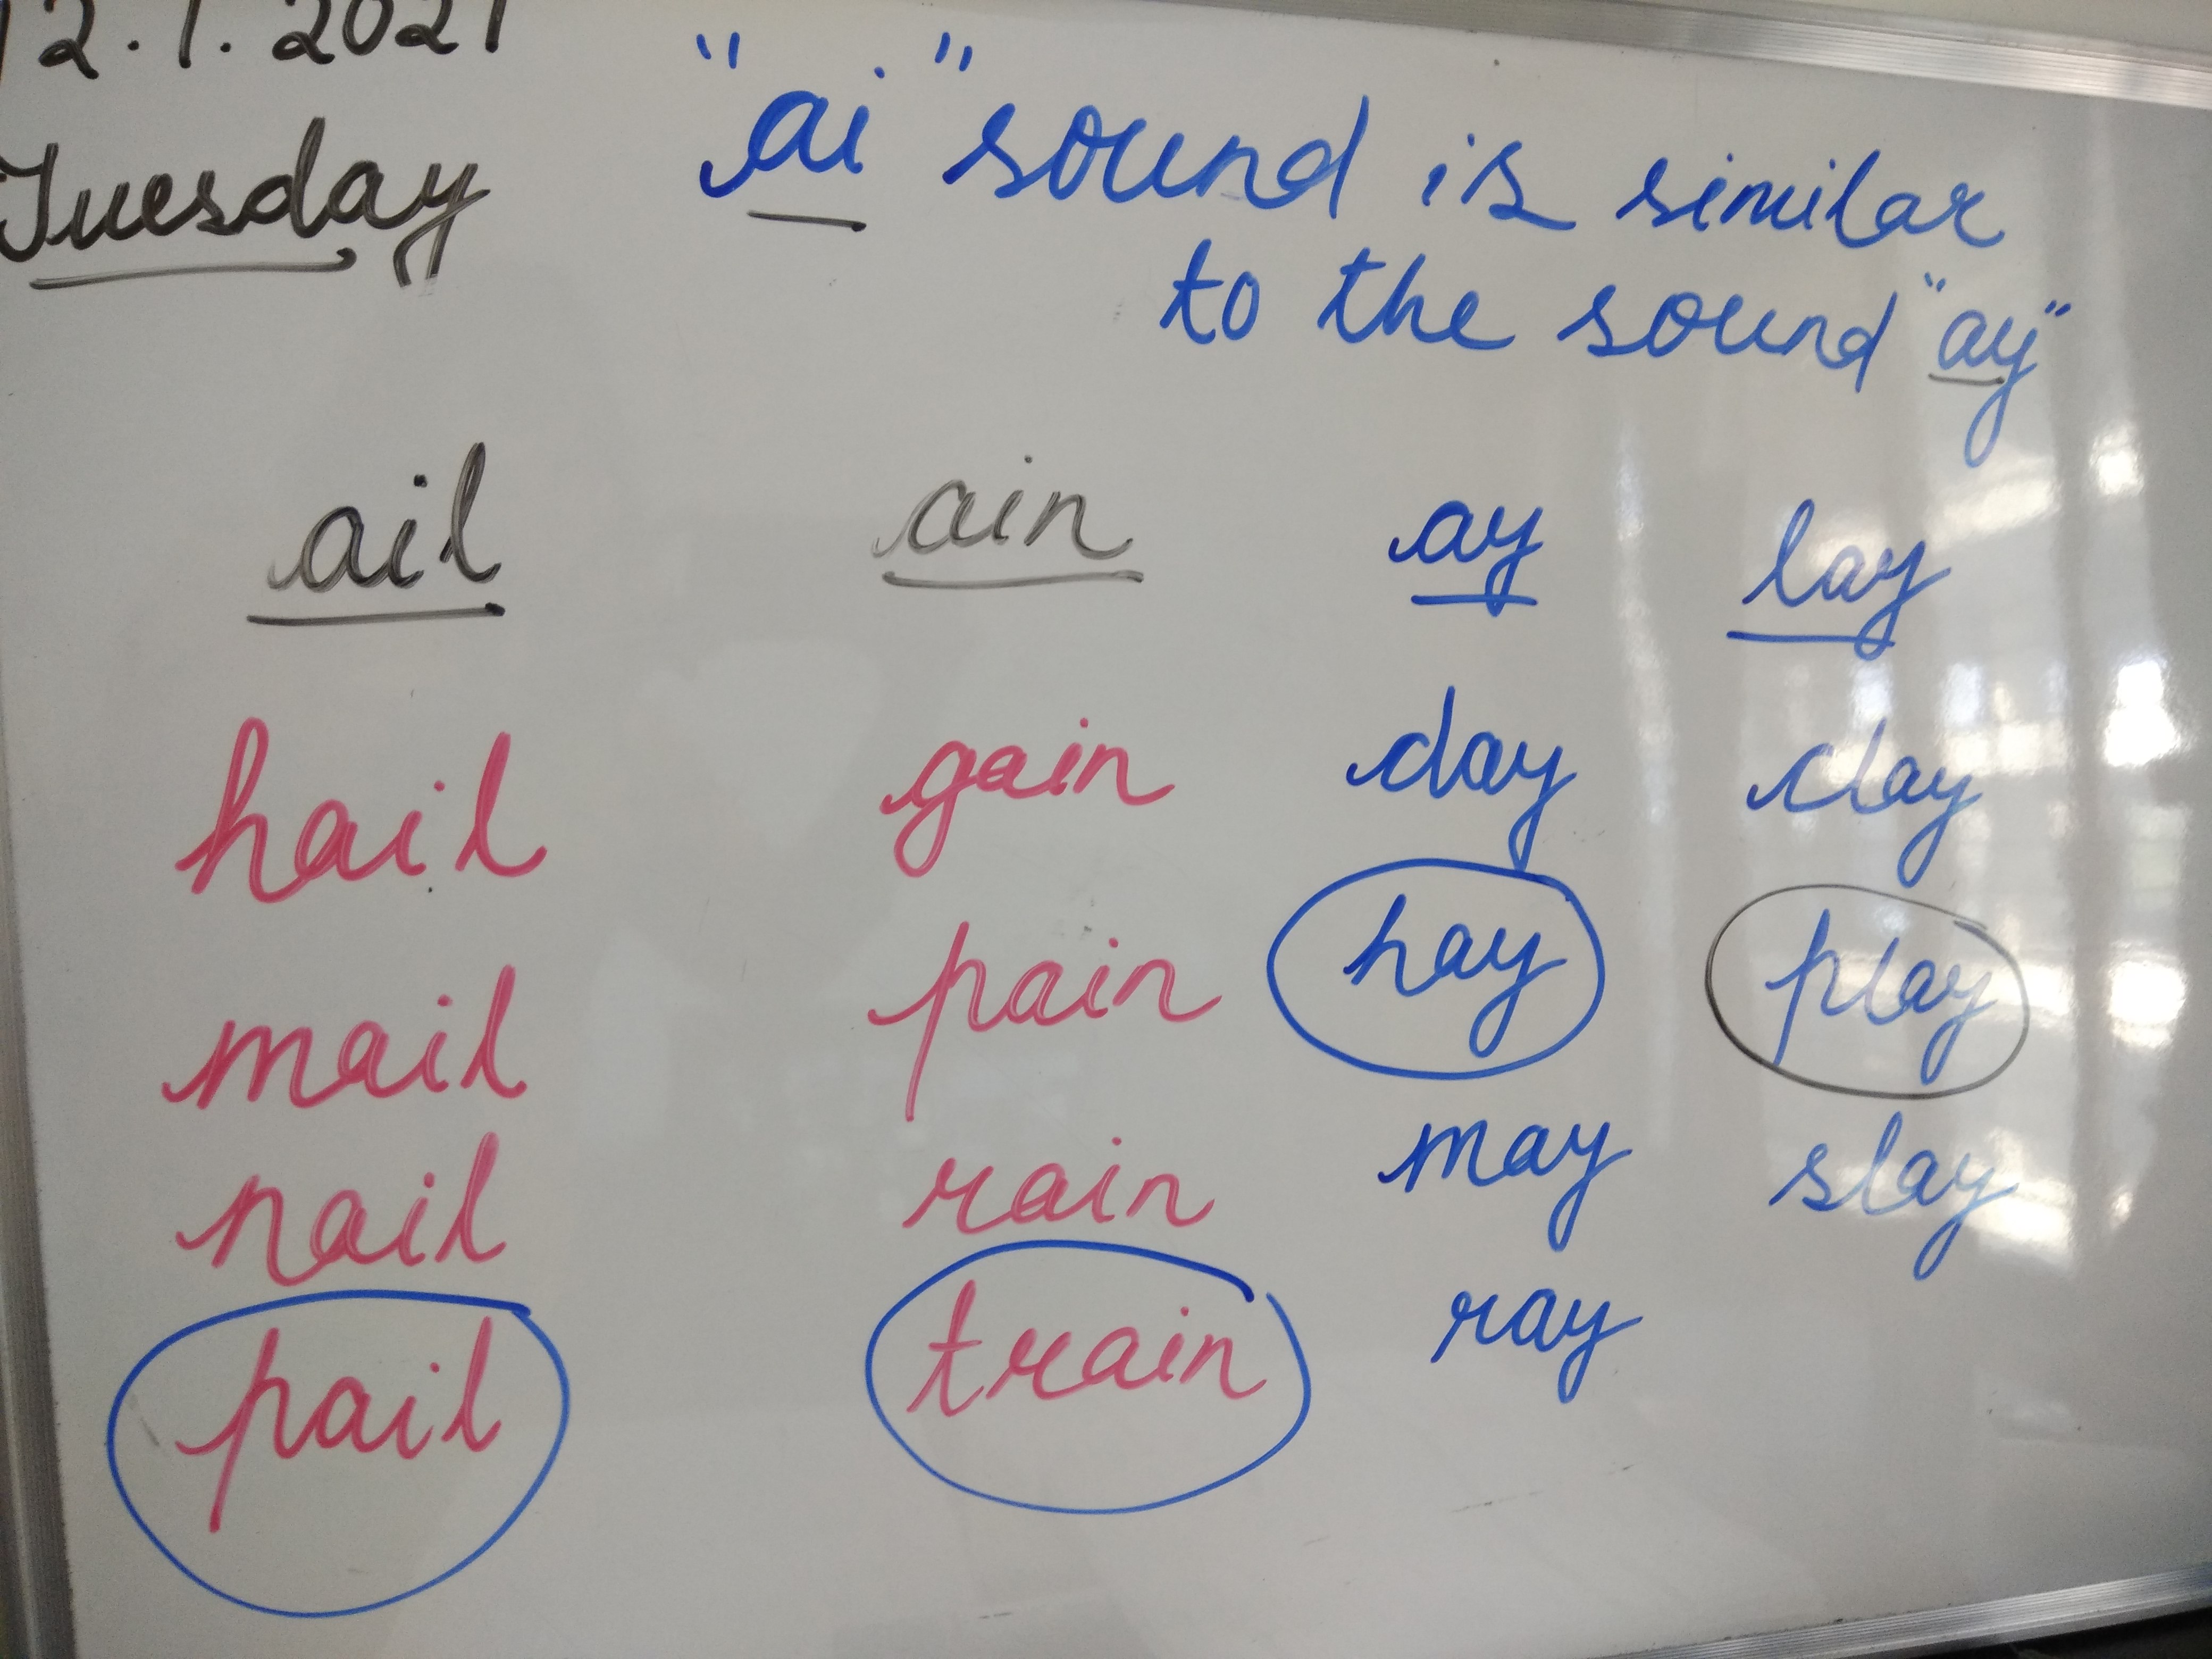 12.1.2021
Tuesday
"ai" sound is similar
to the sound "ay"
ail ain ay lay
hail gain day clay
mail pain hay play
nail rain may slay
pail train ray